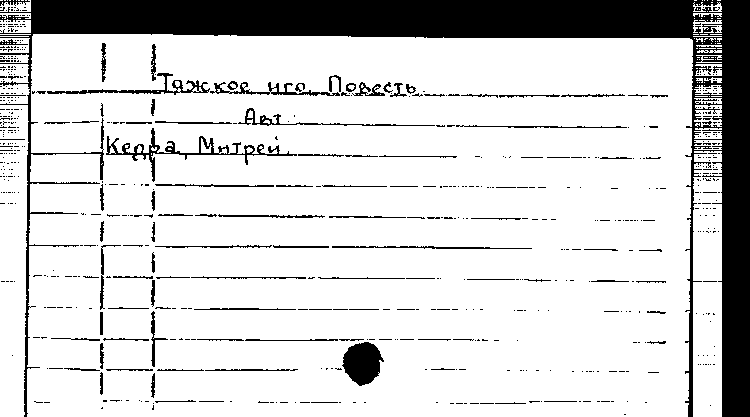 Тяжкое иго. Повесть.
Авт.:
Кедра, Митрей.